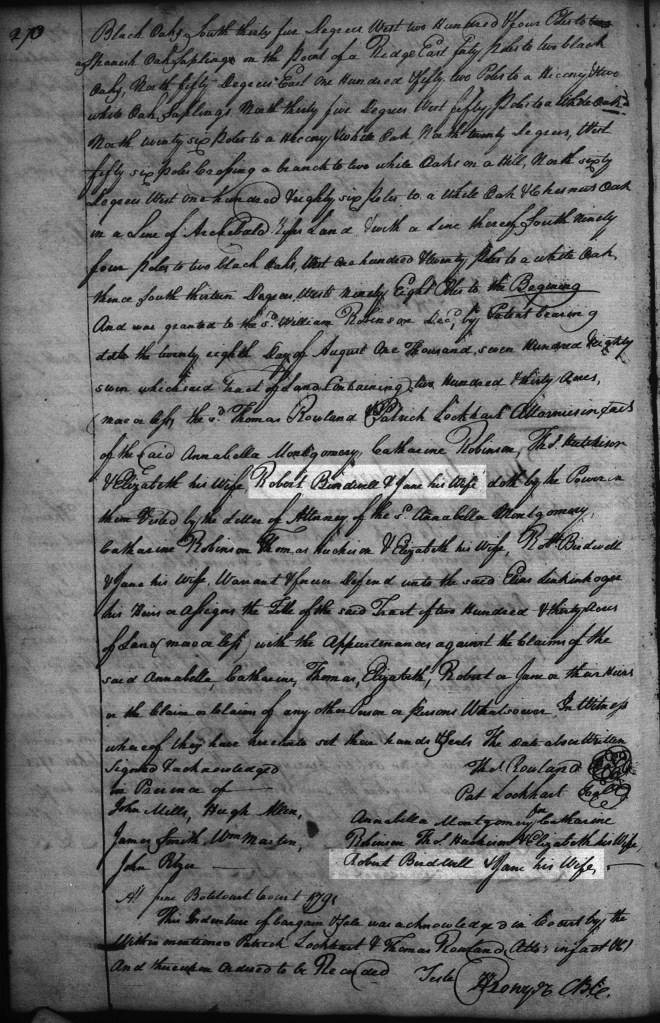 273
Black Oaks South thirty five Degrees West two Hundred & four Poles to
a Spanish Oak Saplings on the Point of a Ridge East forty Poles to two black
Oaks, North fifty Degrees East One Hundred & fifty two Poles to a Hiccory & two
white Oak Saplings North thirty five Degrees West fifty Poles to a White Oak
North twenty six Poles to a Hiccory & White Oak, North twenty Degrees, West
fifty six Poles Crossing a branch to two white Oaks on a Hill, North sixty
Degrees West One hundred & eighty six Poles, to a White Oak & Chesnut Oak
in a Line of Archebald Land & with a Line thereof South Ninety
four Poles to two black Oaks, West One hundred & twenty Poles to a white Oak,
thence South thirteen Degrees, West Ninety Eight Poles to the Begining
And was granted to the sd. William Robinson Decd. by Patent bearing
date the twenty eighth Day of August One Thousand, seven Hundred & Eighty
seven which said Tract of Land Containing two Hundred & thirty Acres,
(more or less, the sd. Thomas Rowland & Patrick Lockhart Attornies in fact
of the said Annabella Montgomery, Catharine Robinson, Thos. Hutchison
& Elizabeth his Wife Robert Birdwell & Jane his Wife doth by the Power in
them Vested by the Letter of Attorney of the sd. Annabella Montgomery,
Catharine Robinson Thomas Huchison & Elizabeth his Wife, Robt. Birdwell
& Jane his Wife, Warrant & forever Defend unto the said Elias
his Heirs or Assigns the Title of the said Tract of two Hundred & thirty Acres
of Land (more or less) with the Appurtenances against the Claims of the
said Annabella, Catharine, Thomas, Elizabeth, Robert or Jane or their Heirs
or the Claim or Claims of any other Person or Persons Whatsoever In Witness
whereof they have hereunto set their hands & Seals The date above Written
Signed & acknowledged Thos. Rowland
in Presence of Pat Lockhart
John Mills, Hugh Allen, Annabella Montgomery Catharine
James Smith Wm Martin, Robinson Thos. Huchison & Elizabeth his Wife,
John Robert Birdwell & Jane his Wife,
At June Botetourt Court 1791
This Indenture of bargain & sale was acknowledged in Court by the
Within mentioned Patrick Lockhart & Thomas Rowland Attos. in fact &c
And thereupon ordered to be Recorded Teste